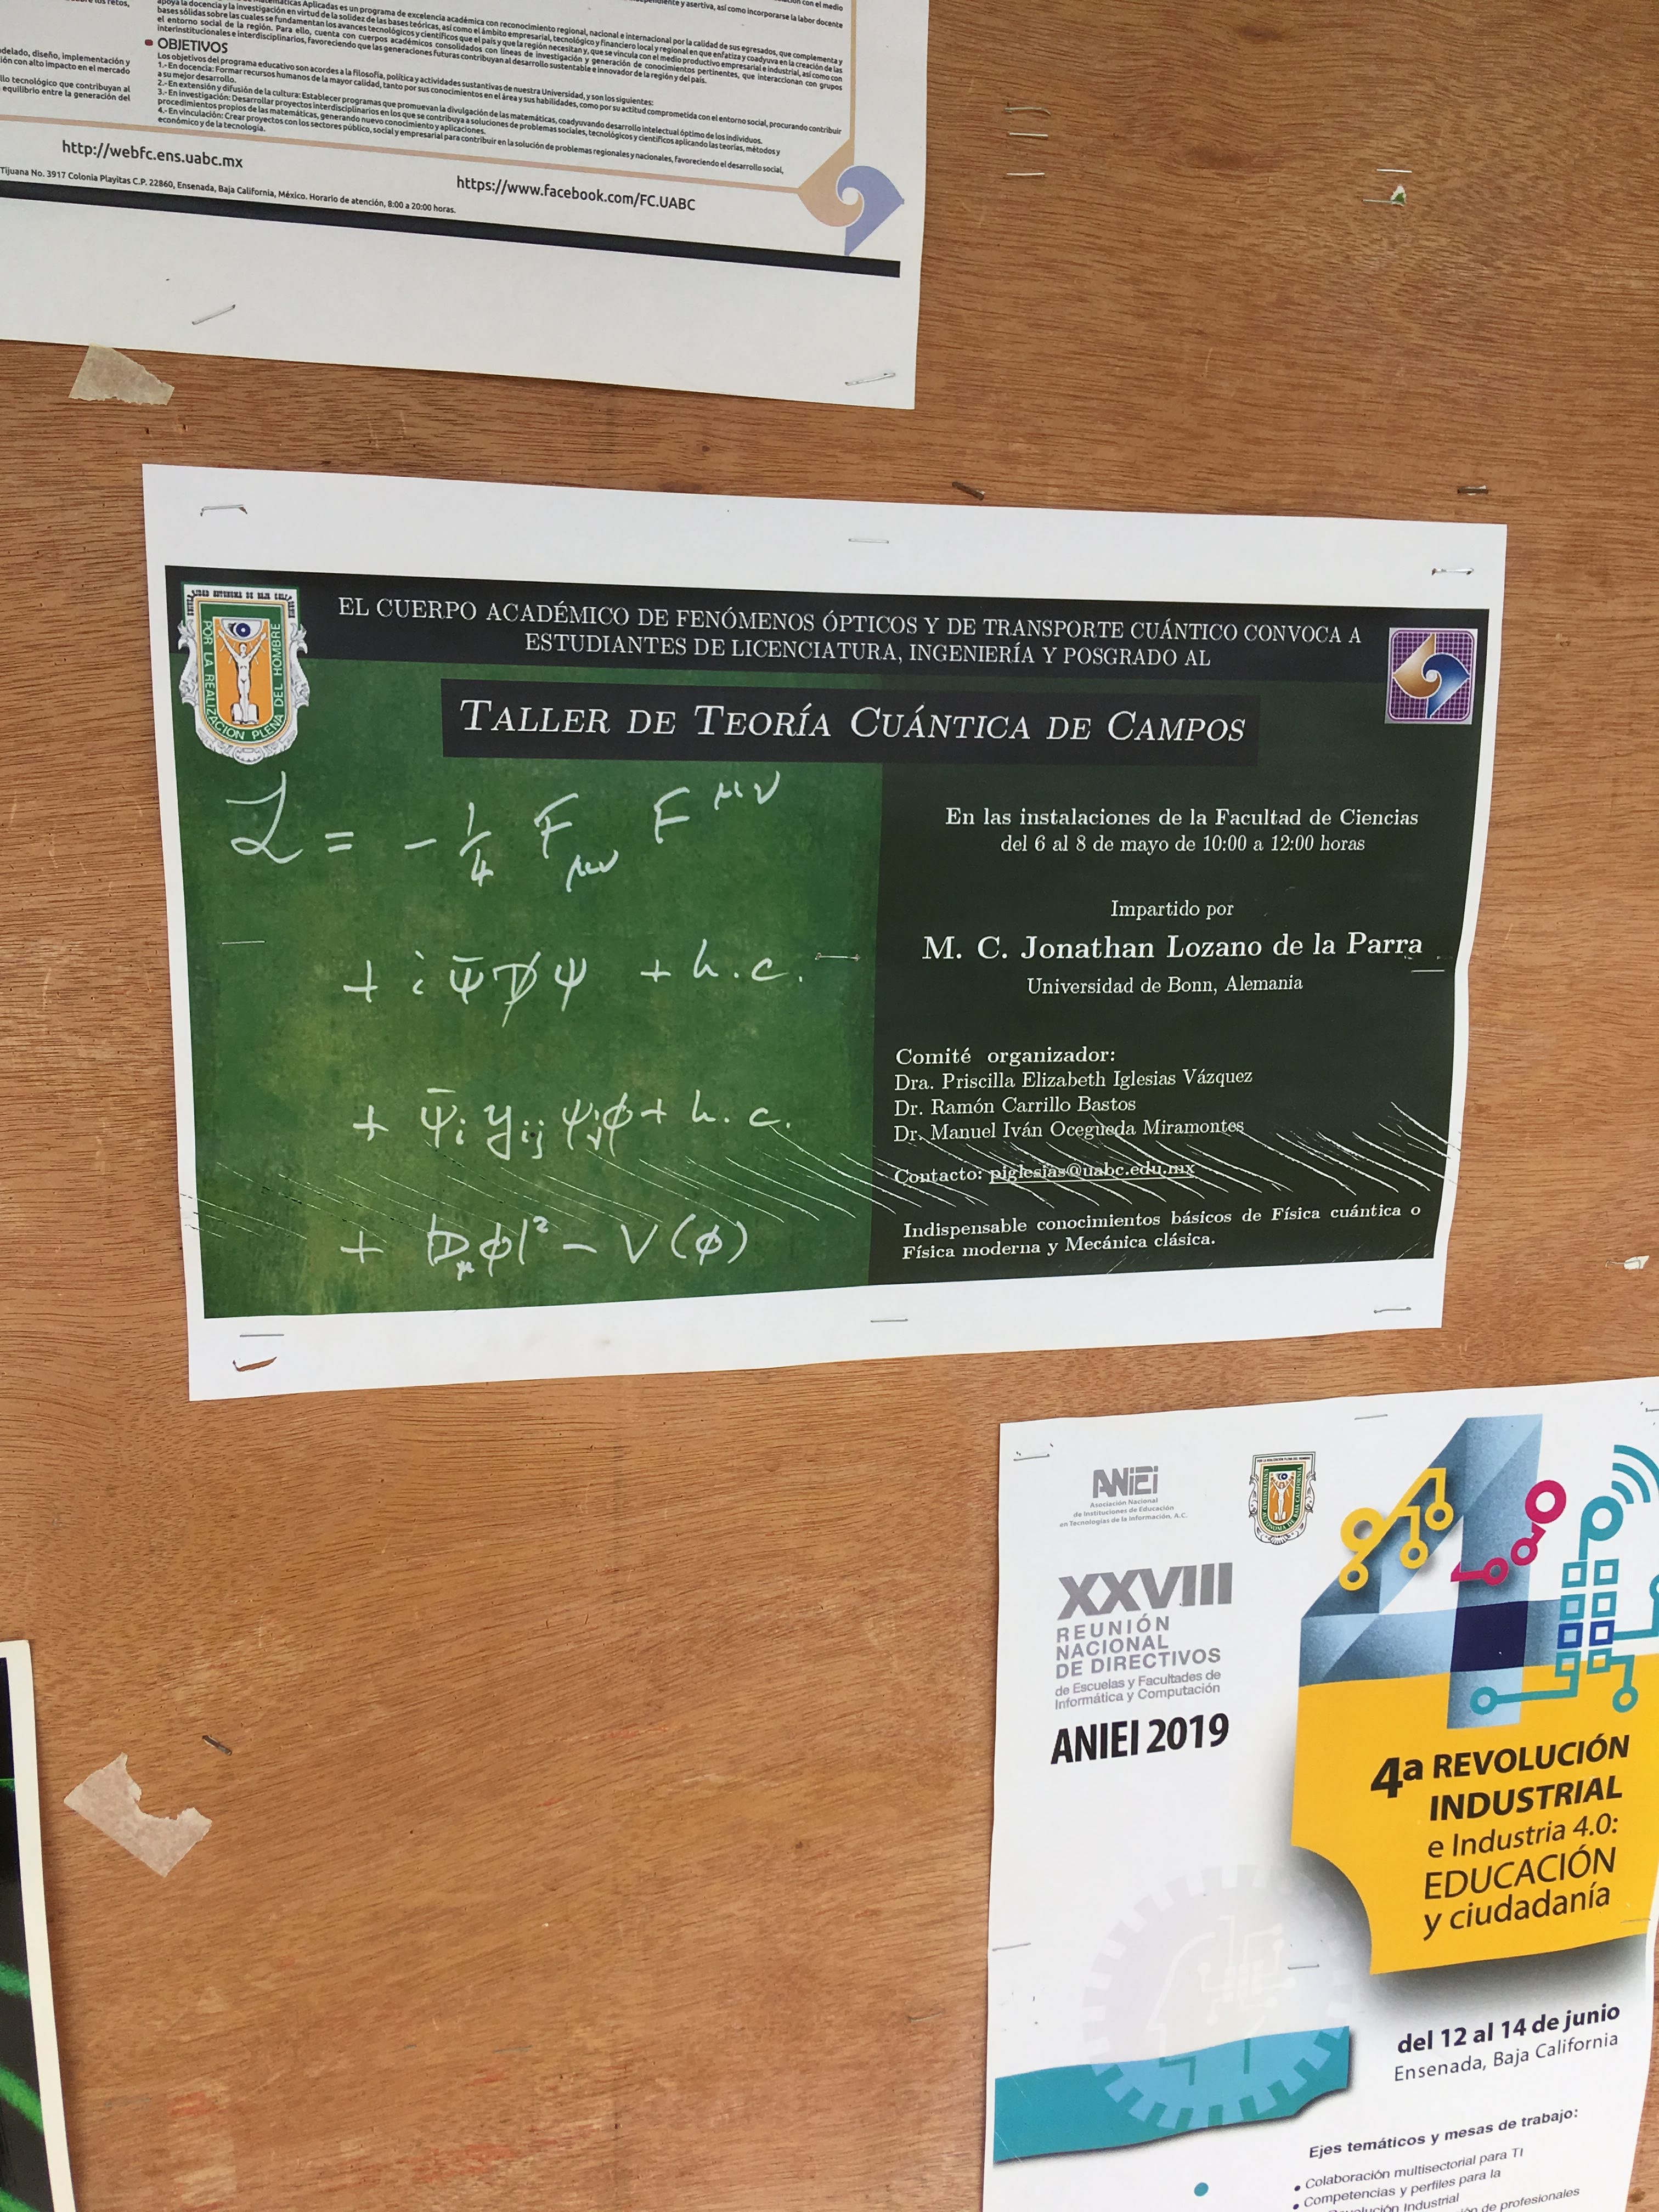 apoya la docencia y la investigación en virtud de la solidez de las bases teóricas, así como el ámbito empresarial, tecnológico y financiero local y regional en que enfatiza y coadyuva en la creación de las
bases sólidas sobre las cuales se fundamentan los avances tecnológicos y científicos que el país y que la región necesitan y, que se vincula con el medio productivo empresarial e industrial, así como con
el entorno social de la región. Para ello, cuenta con cuerpos académicos consolidados con líneas de investigación y generación de conocimientos pertinentes, que interaccionan con grupos
interinstitucionales e interdisciplinarios, favoreciendo que las generaciones futuras contribuyan al desarrollo sustentable e innovador de la región y del país.
OBJETIVOS
Los objetivos del programa educativo son acordes a la filosofía, política y actividades sustantivas de nuestra Universidad, y son los siguientes:
1.- En docencia: Formar recursos humanos de la mayor calidad, tanto por sus conocimientos en el área y sus habilidades, como por su actitud comprometida con el entorno social, procurando contribuir
a su mejor desarrollo.
2.- En extensión y difusión de la cultura: Establecer programas que promuevan la divulgación de las matemáticas, coadyuvando desarrollo intelectual óptimo de los individuos.
3.- En investigación: Desarrollar proyectos interdisciplinarios en los que se contribuya a soluciones de problemas sociales, tecnológicos y científicos aplicando las teorías, métodos y
procedimientos propios de las matemáticas, generando nuevo conocimiento y aplicaciones.
4.- En vinculación: Crear proyectos con los sectores público, social y empresarial para contribuir en la solución de problemas regionales y nacionales, favoreciendo el desarrollo social,
económico y de la tecnología.
diseño, implementación y
ión con alto impacto en el mercado
llo tecnológico que contribuyan al
equilibrio entre la generación del
http://webfc.ens.uabc.mx
https://www.facebook.com/FC.UABC
Tijuana No. 3917 Colonia Playitas C.P. 22860, Ensenada, Baja California, México. Horario de atención, 8:00 a 20:00 horas.
POR LA REALIZACION PLENA DEL HOMBRE
EL CUERPO ACADÉMICO DE FENÓMENOS ÓPTICOS Y DE TRANSPORTE CUÁNTICO CONVOCA A
ESTUDIANTES DE LICENCIATURA, INGENIERÍA Y POSGRADO AL
TALLER DE TEORÍA CUÁNTICA DE CAMPOS
ℒ = - 1/4 F_μν F^μν
+ i ψ̄ D̸ ψ + h.c.
+ ψ̄_i y_ij ψ_j φ + h.c.
+ |D_μ φ|² - V(φ)
En las instalaciones de la Facultad de Ciencias
del 6 al 8 de mayo de 10:00 a 12:00 horas
Impartido por
M. C. Jonathan Lozano de la Parra
Universidad de Bonn, Alemania
Comité organizador:
Dra. Priscilla Elizabeth Iglesias Vázquez
Dr. Ramón Carrillo Bastos
Dr. Manuel Iván Ocegueda Miramontes
Contacto: piglesias@uabc.edu.mx
Indispensable conocimientos básicos de Física cuántica o
Física moderna y Mecánica clásica.
ANIEI
Asociación Nacional
de Instituciones de Educación
en Tecnologías de la Información, A.C.
XXVIII
REUNIÓN
NACIONAL
DE DIRECTIVOS
de Escuelas y Facultades de
Informática y Computación
ANIEI 2019
4a REVOLUCIÓN
INDUSTRIAL
e Industria 4.0:
EDUCACIÓN
y ciudadanía
del 12 al 14 de junio
Ensenada, Baja California
Ejes temáticos y mesas de trabajo:
• Colaboración multisectorial para TI
• Competencias y perfiles para la
Revolución Industrial
de profesionales